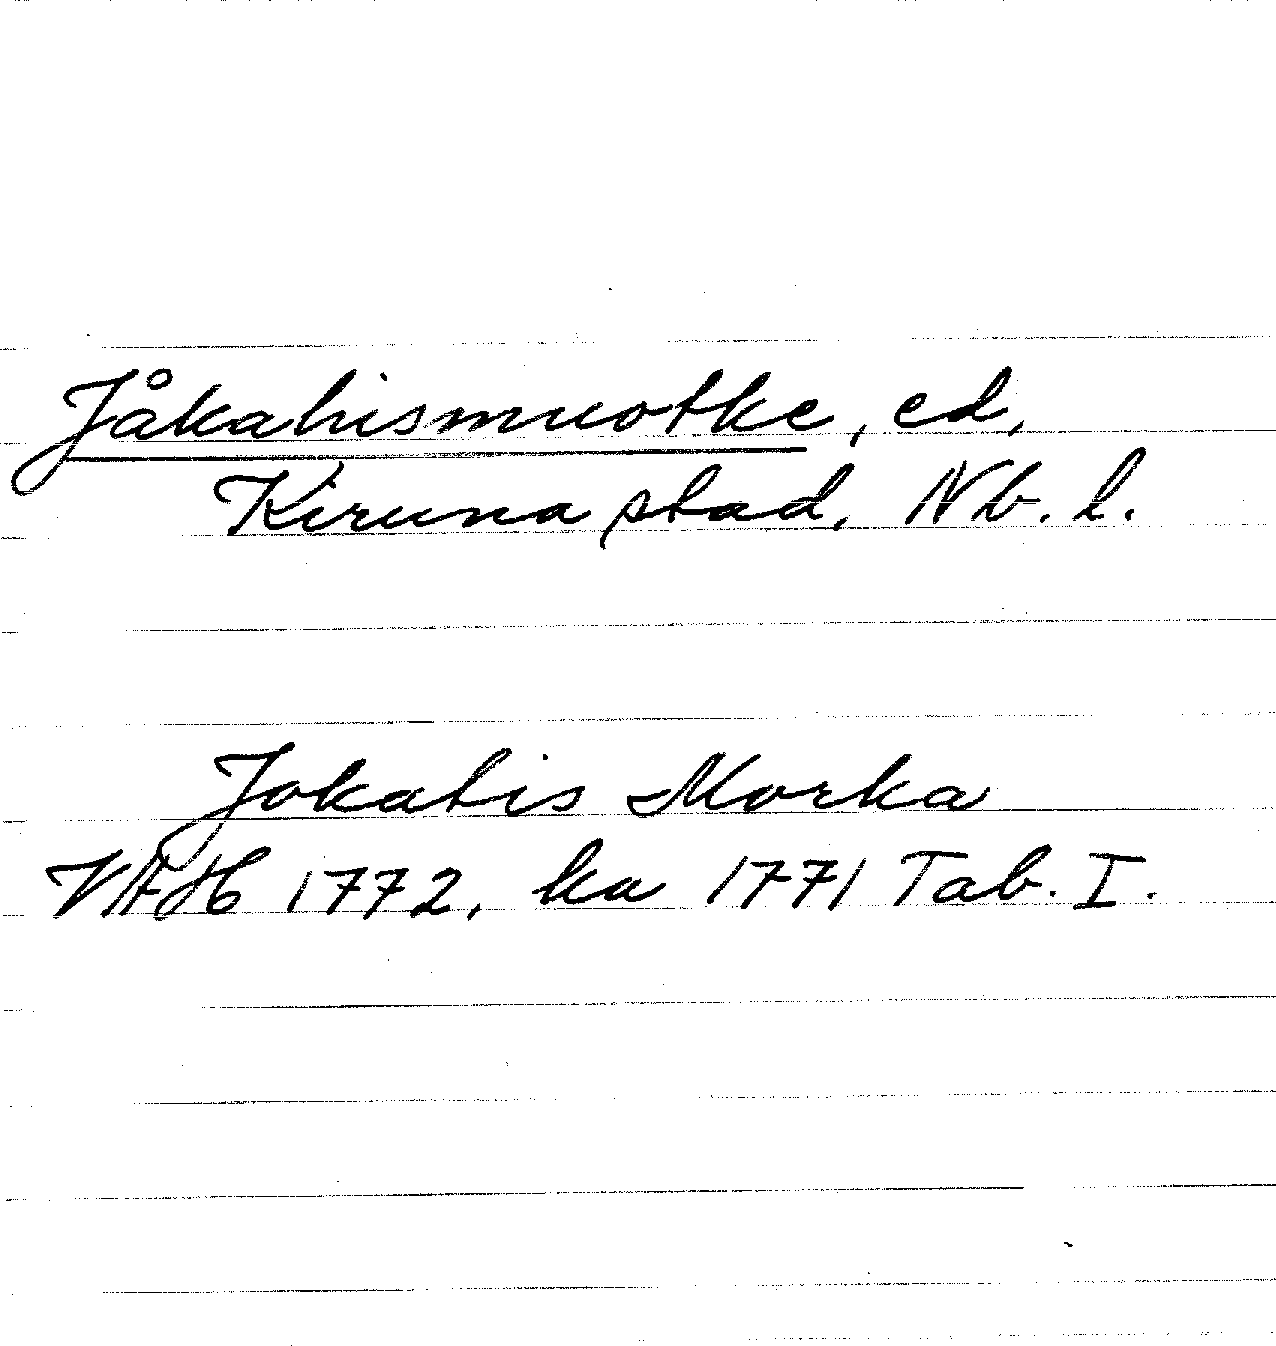 Jåkahismuotke, ed,
Kiruna stad, Nb. l.
Jokatis Morka
VAH 1772, ka 1771 Tab. I.